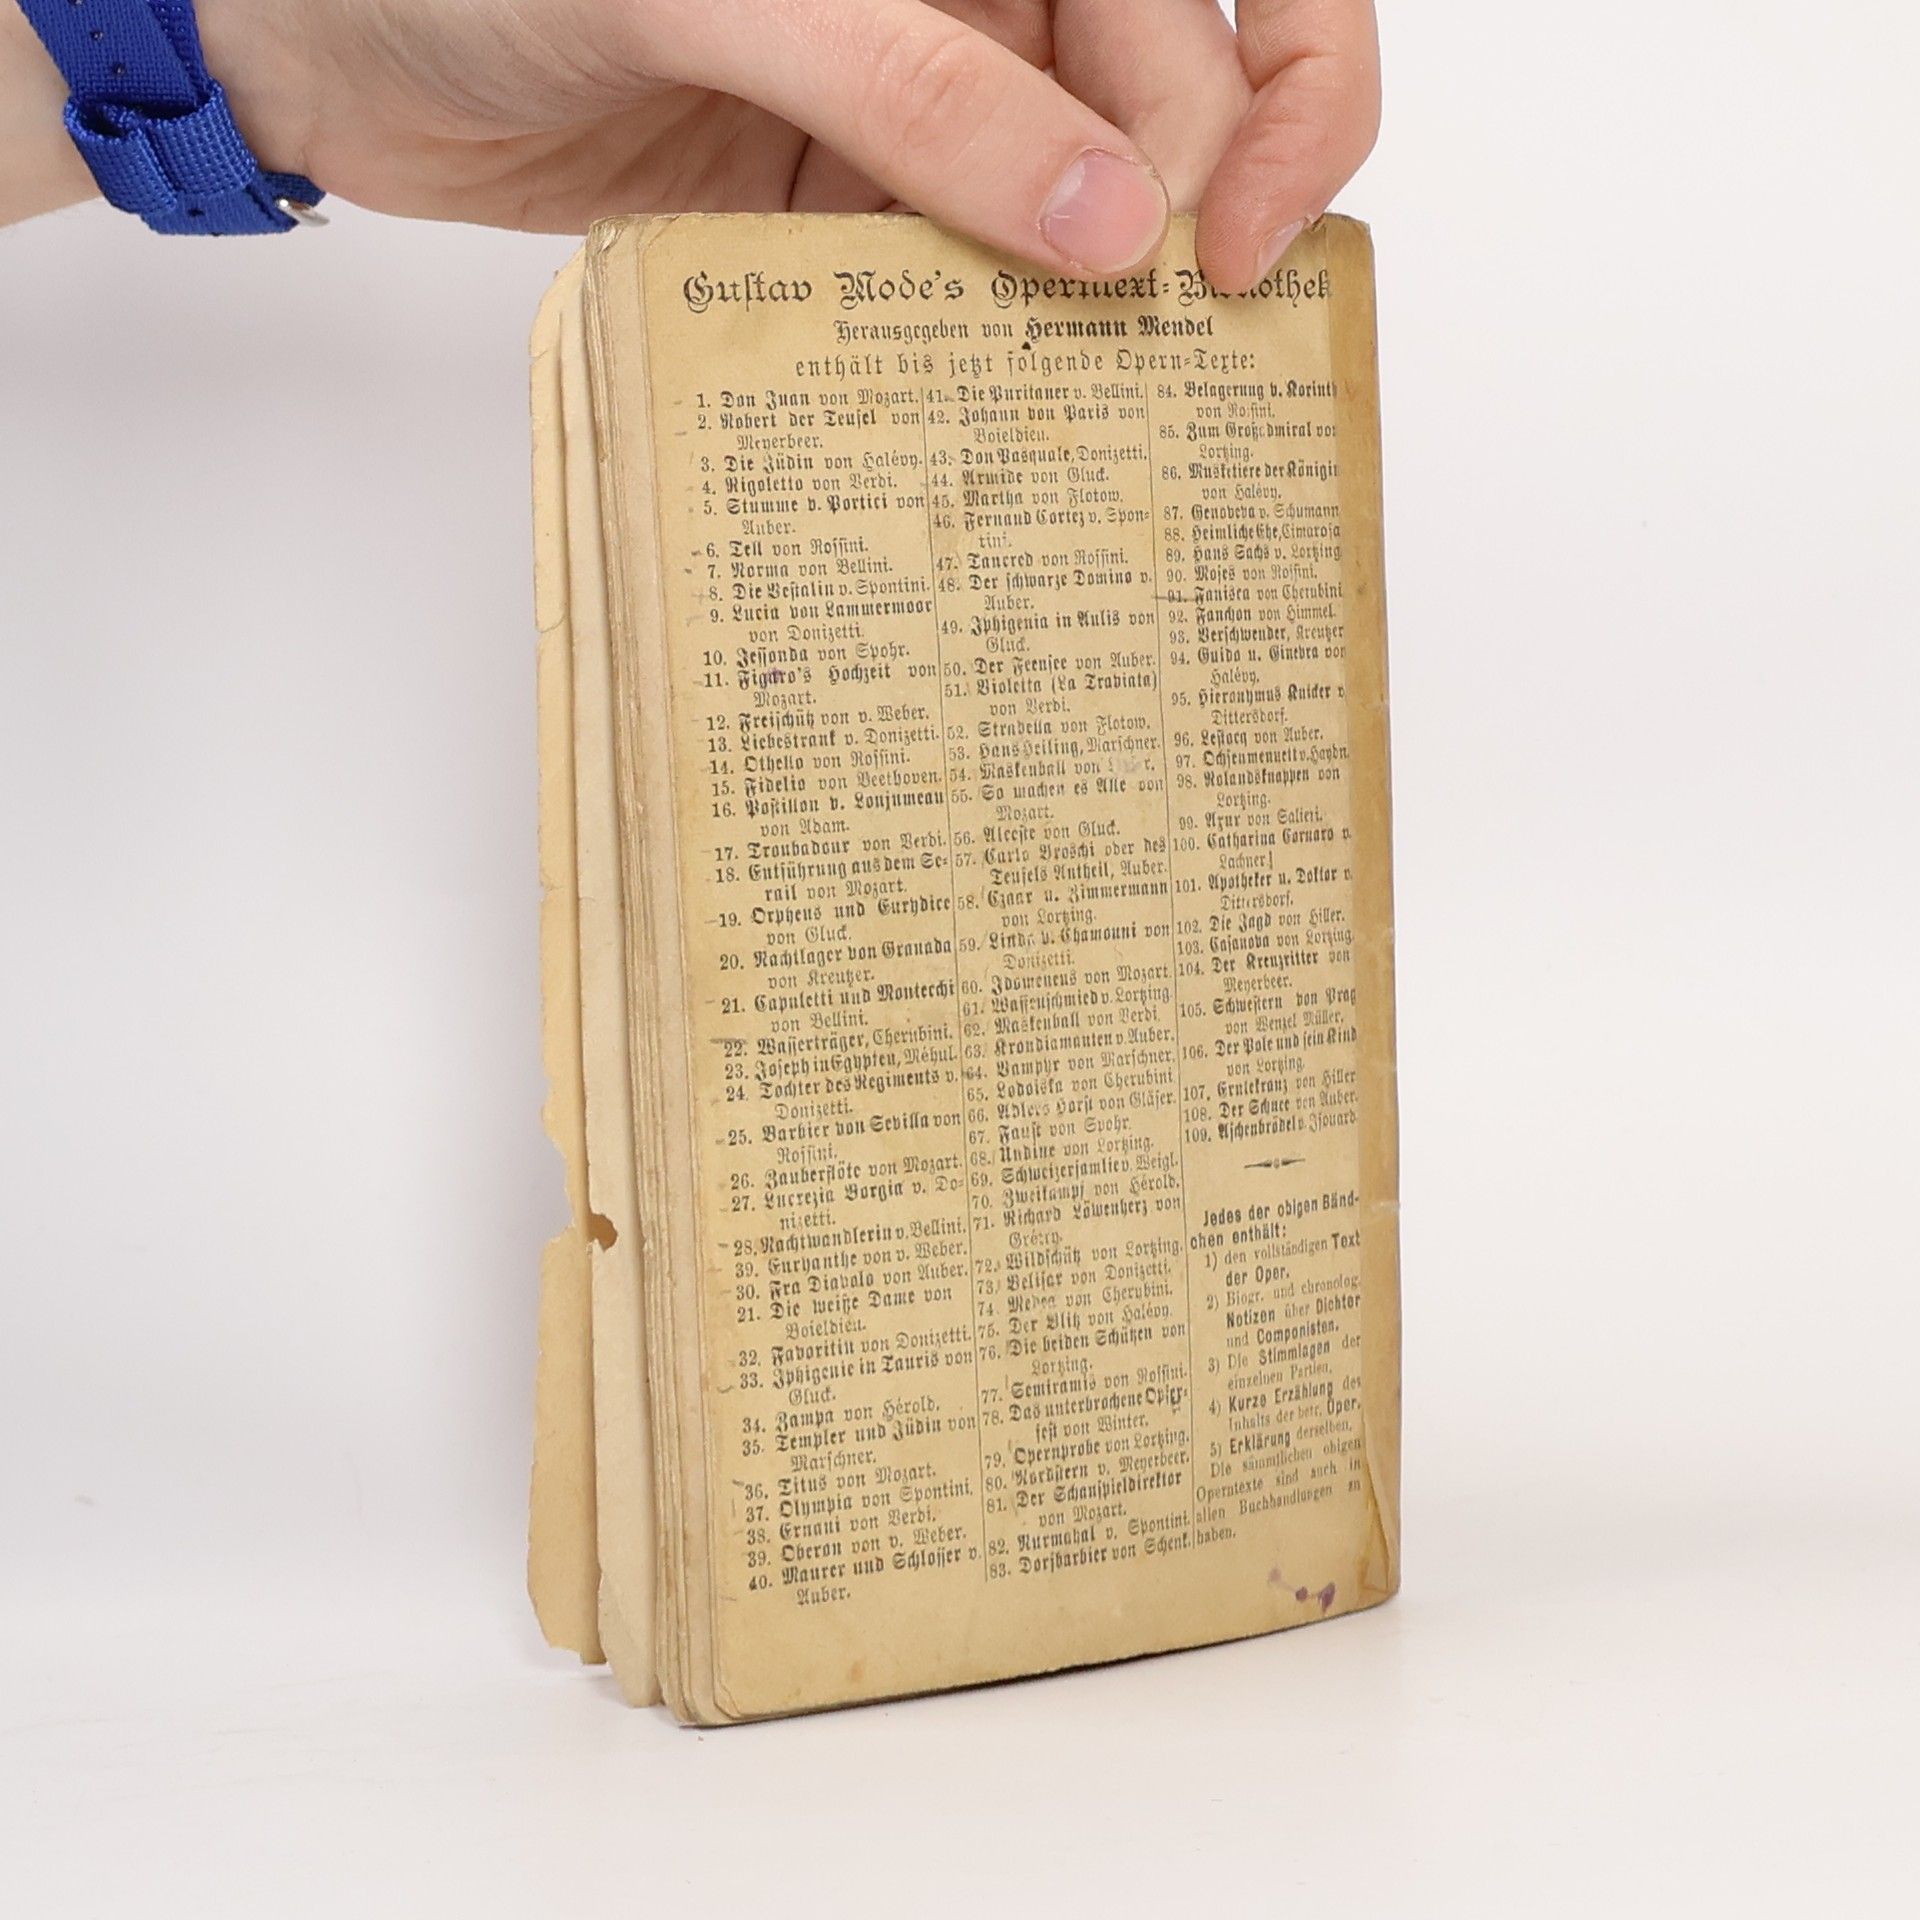 Gustav Mode's Operntext-Bibliothek
Herausgegeben von Hermann Mendel
enthält bis jetzt folgende Opern-Texte:
1. Don Juan von Mozart.
2. Robert der Teufel von
Meyerbeer.
3. Die Jüdin von Halévy.
4. Rigoletto von Verdi.
5. Stumme v. Portici von
Auber.
6. Tell von Rossini.
7. Norma von Bellini.
8. Die Vestalin v. Spontini.
9. Lucia von Lammermoor
von Donizetti.
10. Jessonda von Spohr.
11. Figaro's Hochzeit von
Mozart.
12. Freischütz von v. Weber.
13. Liebestrank v. Donizetti.
14. Othello von Rossini.
15. Fidelio von Beethoven.
16. Postillon v. Lonjumeau
von Adam.
17. Troubadour von Verdi.
18. Entführung aus dem Se-
rail von Mozart.
19. Orpheus und Eurydice
von Gluck.
20. Nachtlager von Granada
von Kreutzer.
21. Capuletti und Montecchi
von Bellini.
22. Wasserträger, Cherubini.
23. Joseph in Egypten, Méhul.
24. Tochter des Regiments v.
Donizetti.
25. Barbier von Sevilla von
Rossini.
26. Zauberflöte von Mozart.
27. Lucrezia Borgia v. Do-
nizetti.
28. Nachtwandlerin v. Bellini.
39. Euryanthe von v. Weber.
30. Fra Diavolo von Auber.
21. Die weiße Dame von
Boieldieu.
32. Favoritin von Donizetti.
33. Iphigenie in Tauris von
Gluck.
34. Zampa von Hérold.
35. Templer und Jüdin von
Marschner.
36. Titus von Mozart.
37. Olympia von Spontini.
38. Ernani von Verdi.
39. Oberon von v. Weber.
40. Maurer und Schlosser v.
Auber.
41. Die Puritaner v. Bellini.
42. Johann von Paris von
Boieldieu.
43. Don Pasquale, Donizetti.
44. Armide von Gluck.
45. Martha von Flotow.
46. Fernand Cortez v. Spon-
tini.
47. Tancred von Rossini.
48. Der schwarze Domino v.
Auber.
49. Iphigenia in Aulis von
Gluck.
50. Der Feensee von Auber.
51. Violetta (La Traviata)
von Verdi.
52. Stradella von Flotow.
53. Hans Heiling, Marschner.
54. Maskenball von
55. So machen es Alle von
Mozart.
56. Alceste von Gluck.
57. Carlo Broschi oder des
Teufels Antheil, Auber.
58. Czaar u. Zimmermann
von Lortzing.
59. Linda v. Chamouni von
Donizetti.
60. Idomeneus von Mozart.
61. Waffenschmied v. Lortzing.
62. Maskenball von Verdi.
63. Krondiamanten v. Auber.
64. Vampyr von Marschner.
65. Lodoiska von Cherubini
66. Adlers Horst von Gläser.
67. Faust von Spohr.
68. Undine von Lortzing.
69. Schweizerfamilie v. Weigl.
70. Zweikampf von Hérold.
71. Richard Löwenherz von
Grétry.
72. Wildschütz von Lortzing.
73. Belisar von Donizetti.
74. Medea von Cherubini.
75. Der Blitz von Halévy.
76. Die beiden Schützen von
Lortzing.
77. Semiramis von Rossini.
78. Das unterbrochene Opfer-
fest von Winter.
79. Opernprobe von Lortzing.
80. Nordstern v. Meyerbeer.
81. Der Schauspieldirektor
von Mozart.
82. Nurmahal v. Spontini.
83. Dorfbarbier von Schenk.
84. Belagerung v. Korinth
von Rossini.
85. Zum Großadmiral von
Lortzing.
86. Musketiere der Königin
von Halévy.
87. Genoveva v. Schumann
88. Heimliche Ehe, Cimarosa
89. Hans Sachs v. Lortzing
90. Moses von Rossini.
91. Fanisca von Cherubini
92. Fanchon von Himmel.
93. Verschwender, Kreutzer
94. Guido u. Ginevra von
Halévy.
95. Hieronymus Knicker v
Dittersdorf.
96. Lestocq von Auber.
97. Ochsenmenuett v. Haydn.
98. Rolandsknappen von
Lortzing.
99. Axur von Salieri.
100. Catharina Cornaro v.
Lachner.
101. Apotheker u. Doktor v.
Dittersdorf.
102. Die Jagd von Hiller.
103. Casanova von Lortzing.
104. Der Kreuzritter von
Meyerbeer.
105. Schwestern von Prag
von Wenzel Müller.
106. Der Pole und sein Kind
von Lortzing.
107. Erntekranz von Hiller
108. Der Schnee von Auber.
109. Aschenbrödel v. Isouard.
Jedes der obigen Bänd-
chen enthält:
1) den vollständigen Text
der Oper.
2) Biogr. und chronolog.
Notizen über Dichter
und Componisten.
3) Die Stimmlagen der
einzelnen Partien.
4) Kurze Erzählung des
Inhalts der betr. Oper.
5) Erklärung derselben.
Die sämmtlichen obigen
Operntexte sind auch in
allen Buchhandlungen zu
haben.